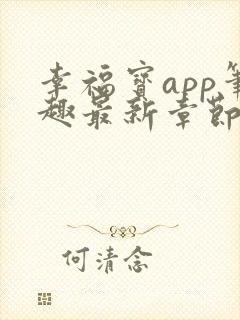 幸福宝app笔
趣最新章节
何清念